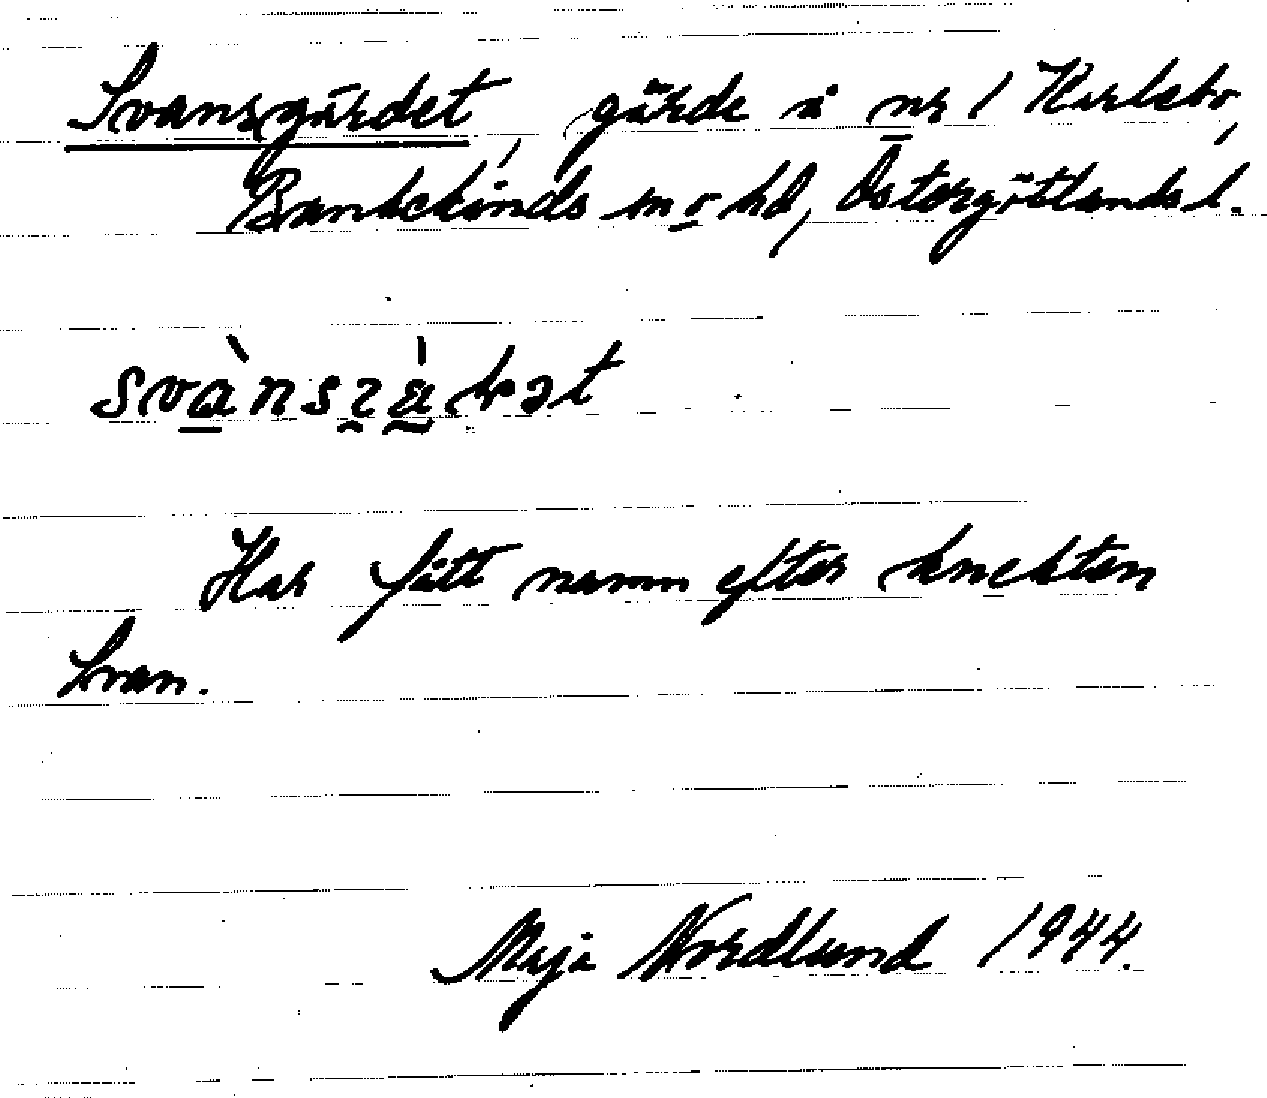 Svansgärdet, gärde å nr 1 Karlsbo,
Bankekinds sn o hd, Östergötlands l.
Har fått namn efter knekten
Svan.
Maja Nordlund 1944.